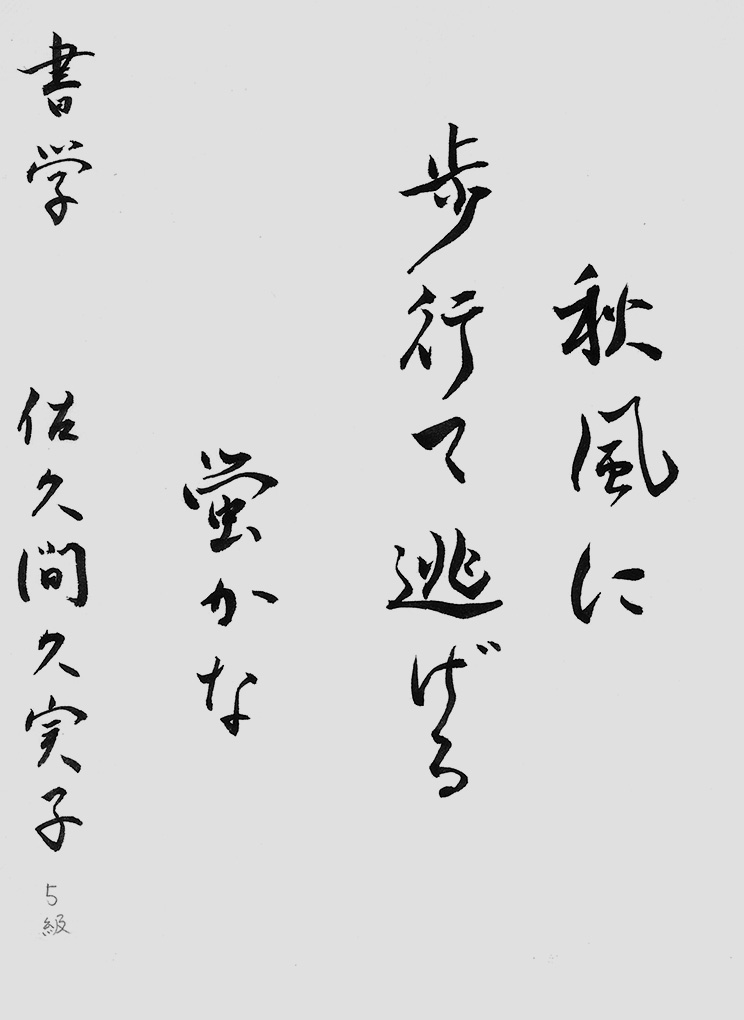 秋風に
歩行て逃げる
蛍かな
書学 佐久間久実子 5級